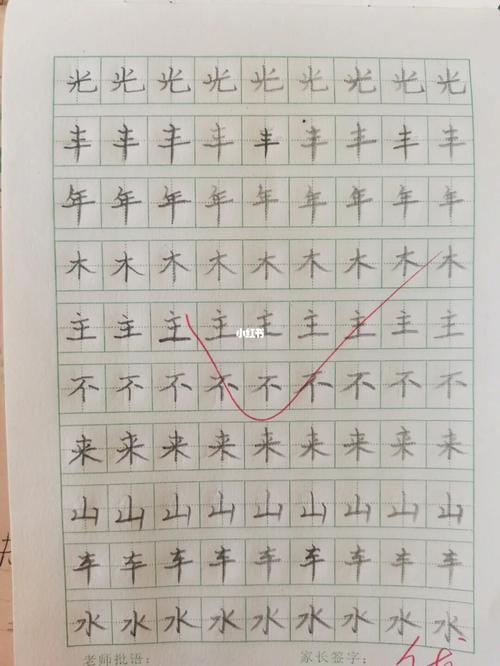 光光光光光光光光光
丰丰丰丰丰丰丰丰丰
年年年年年年年年年
木木木木木木木木木
主主主主主主主主主
小红书
不不不不不不不不不
来来来来来来来来来
山山山山山山山山山
车车车车车车车车车
水水水水水水水水水
老师批语： 家长签字：